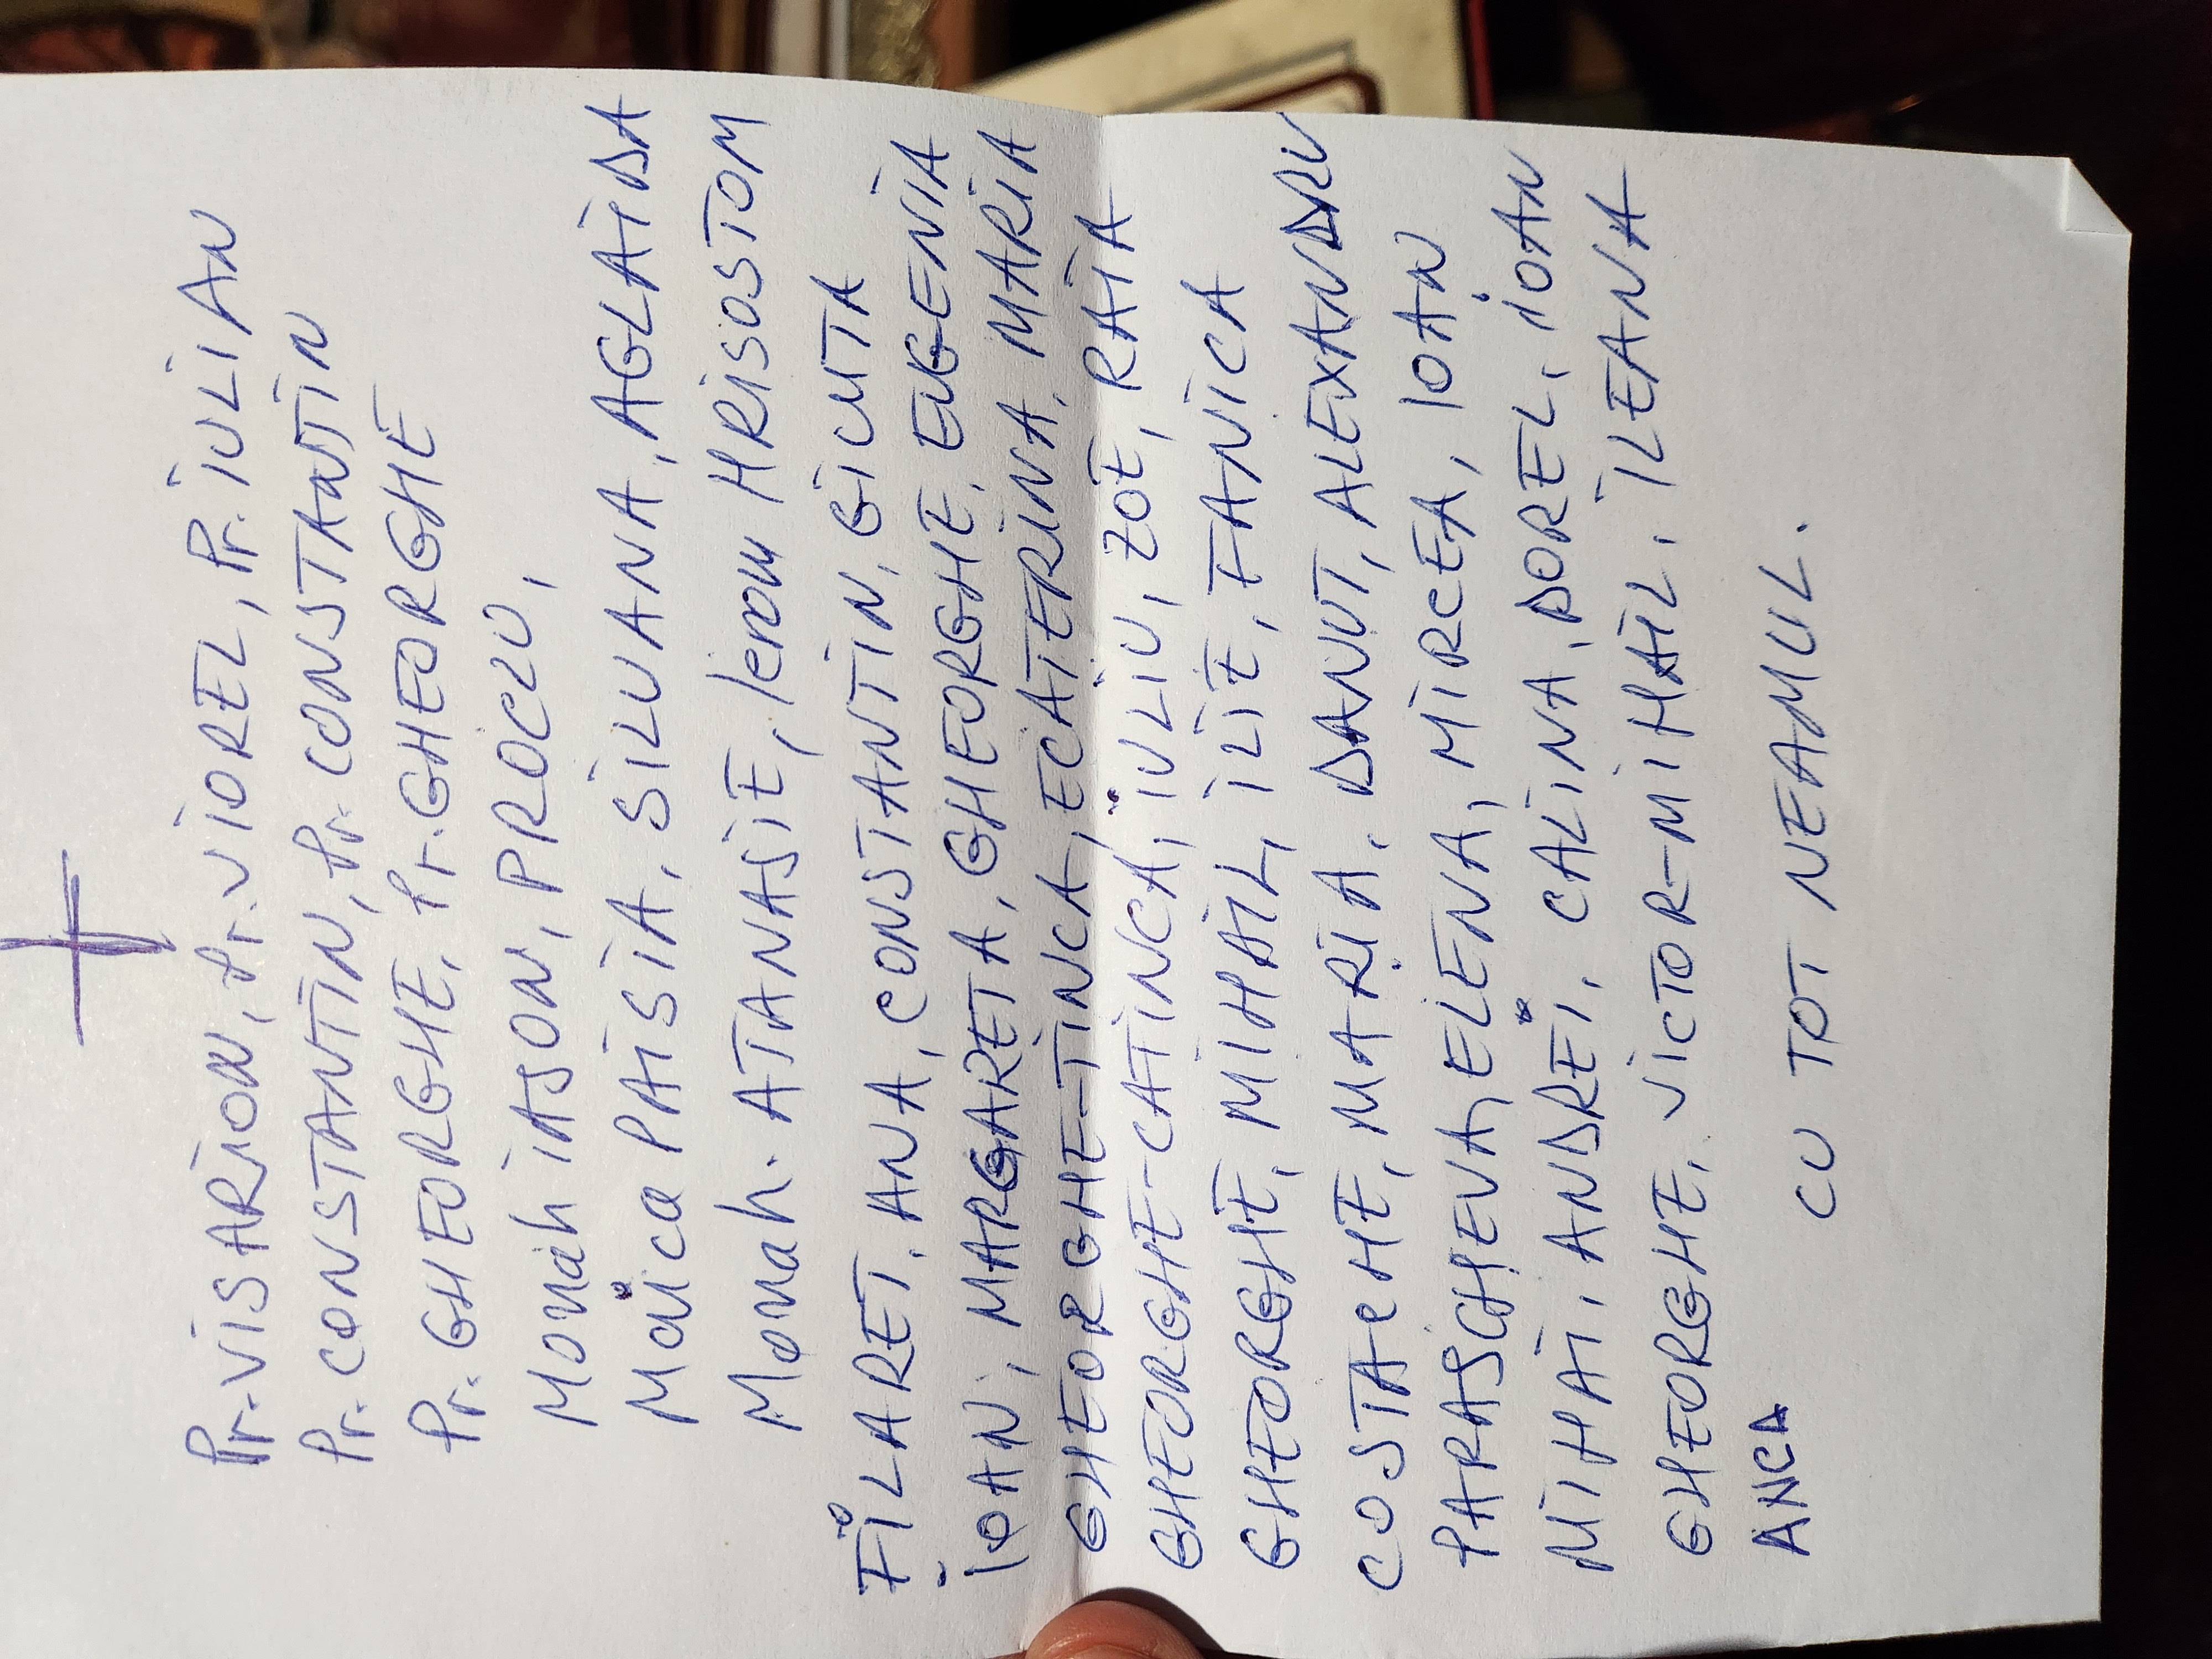 Pr. VISARION, Pr. VIOREL, Pr. IULIAN
Pr. CONSTANTIN, Pr. CONSTANTIN
Pr. GHEORGHE, Pr. GHEORGHE
Monah IASON, PROCLU,
Maica PAISIA, SILUANA, AGLAIDA
Monah. ATANASIE, Ierom HRISOSTOM
FILARET, ANA, CONSTANTIN, GICUTA
IOAN, MARGARETA, GHEORGHE, EUGENIA
GHEORGHE-TINCA, ECATERINA, MARIA
GHEORGHE-CATINCA, IULIU, ZOE, RAIA
GHEORGHE, MIHAIL, ILIE, FANICA
COSTACHE, MARIA, DANUT, ALEXANDRU
PARASCHEVA, ELENA, MIRCEA, IOAN
MIHAI, ANDREI, CALINA, DOREL, IOAN
GHEORGHE, VICTOR-MIHAIL, ILEANA
ANCA
CU TOT NEAMUL.